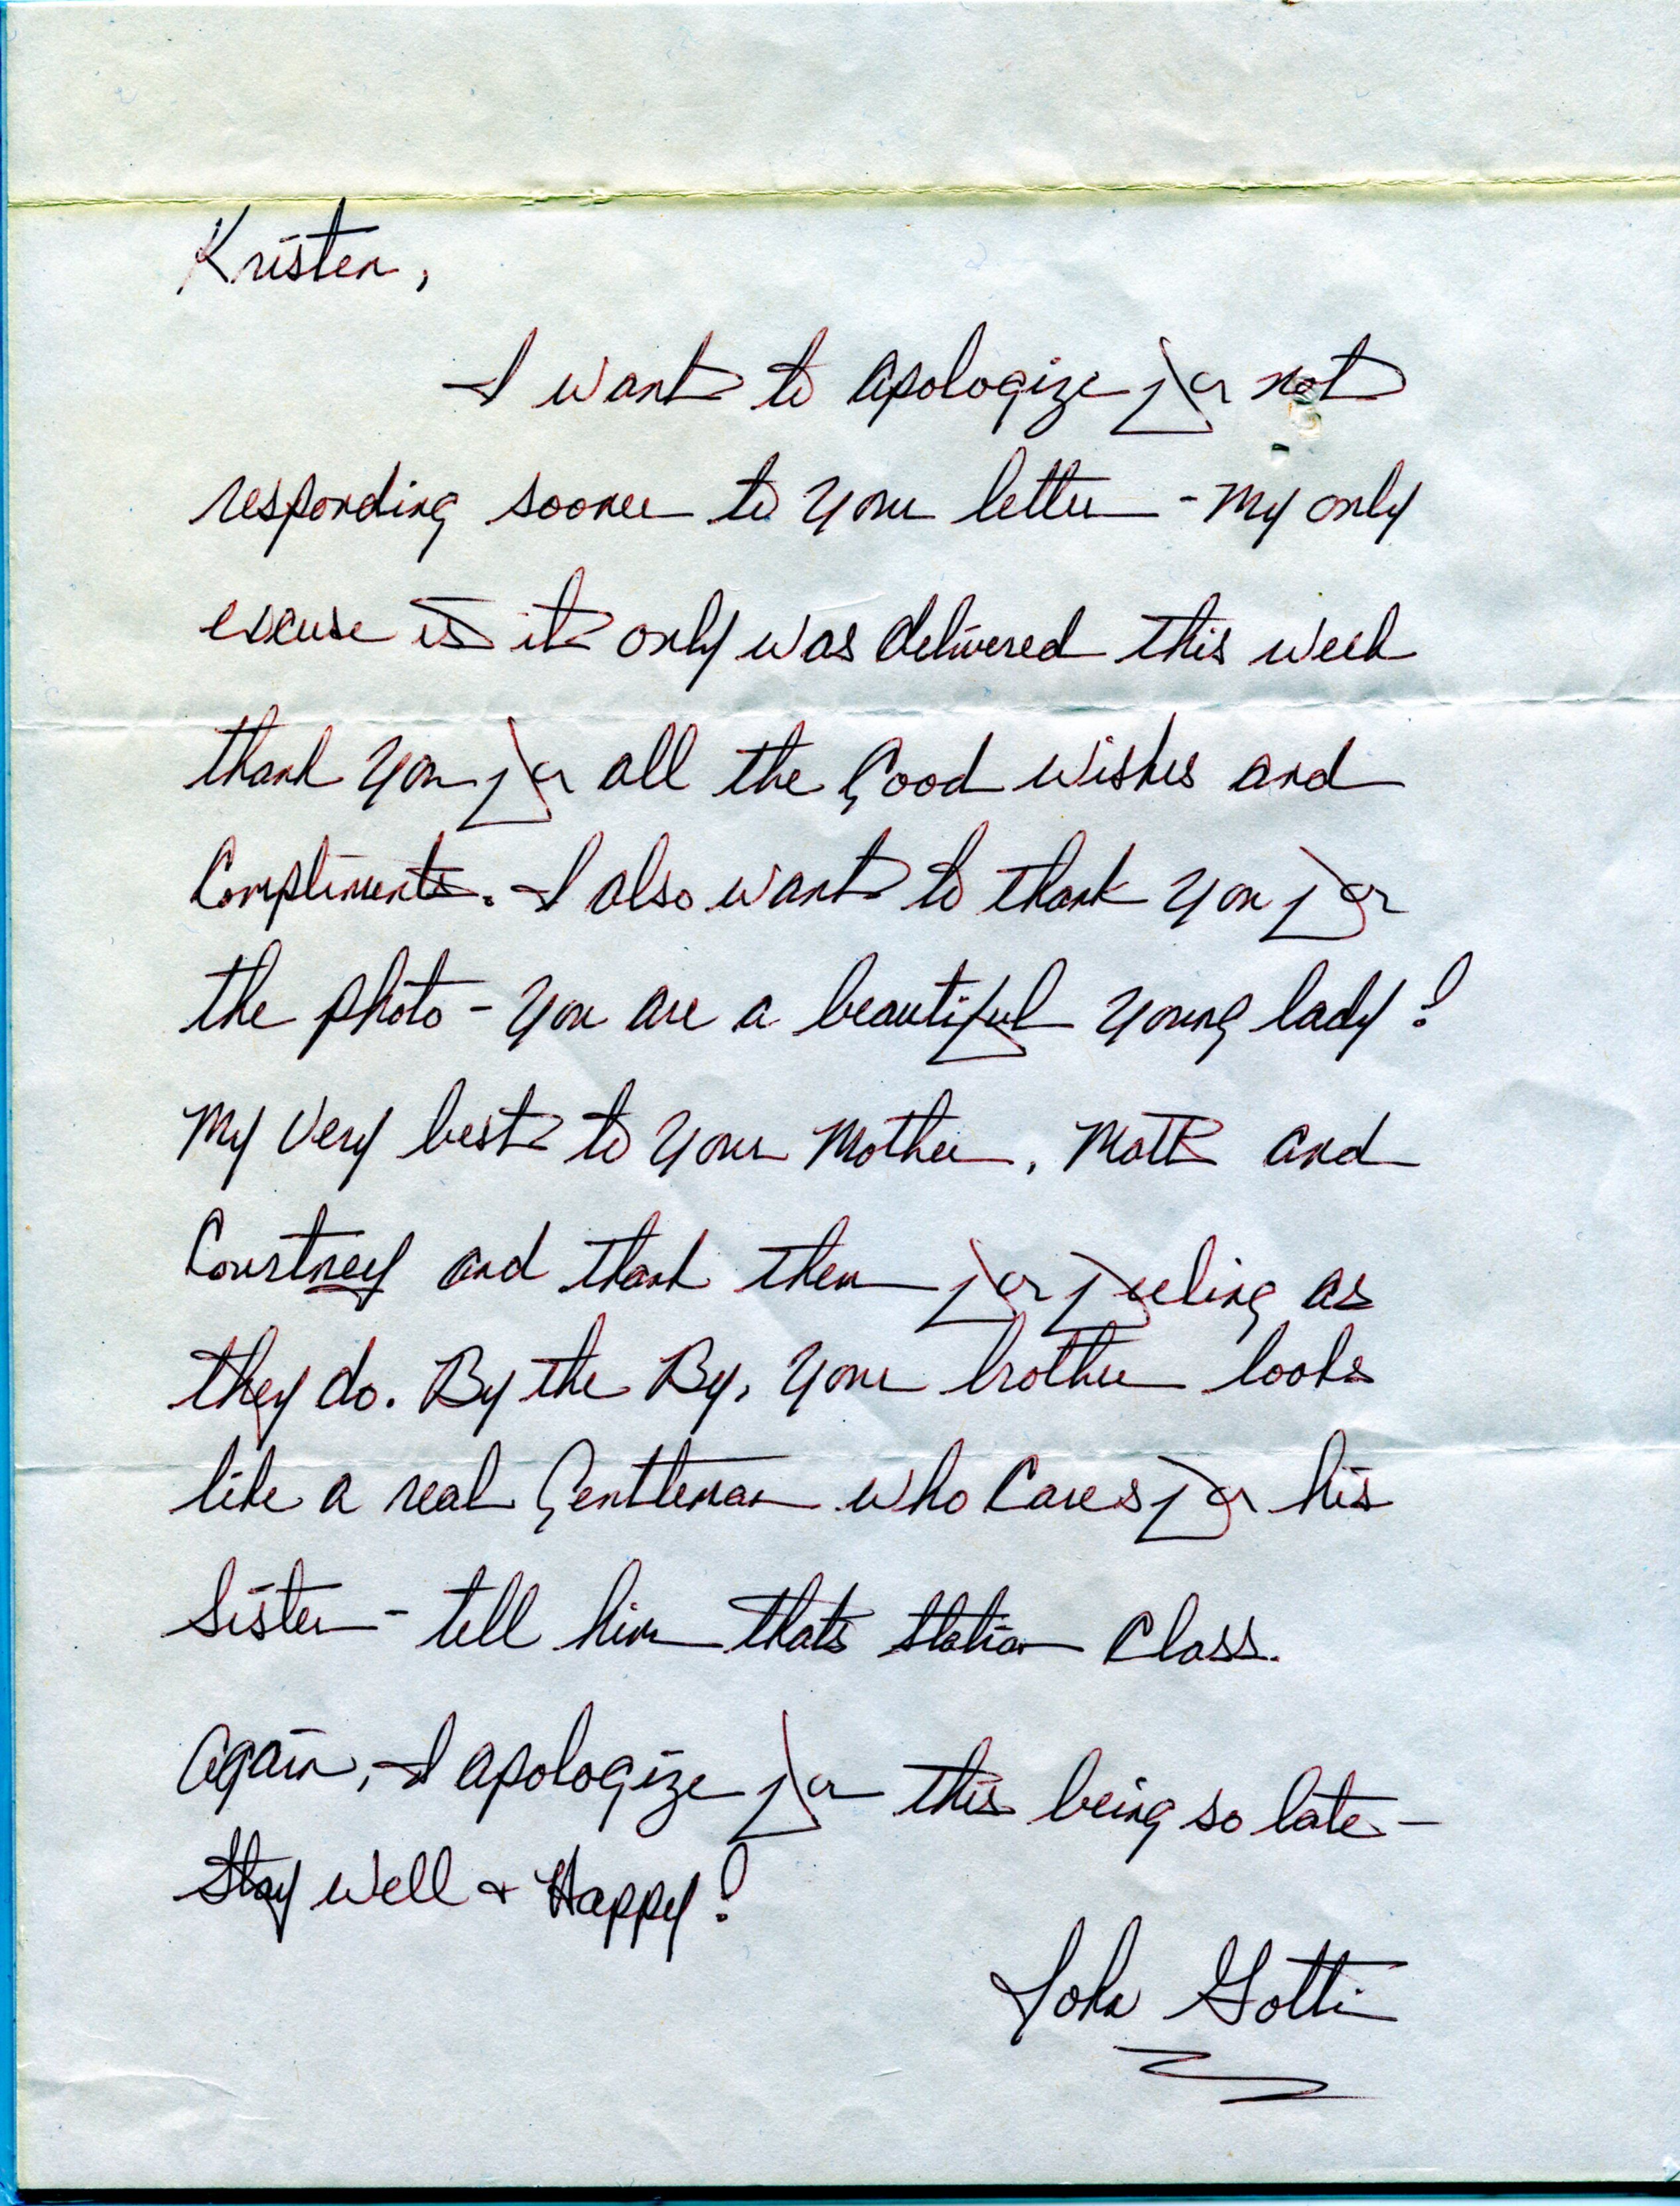 Kristen,
I want to apologize for not
responding sooner to your letter - My only
excuse is it only was delivered this week
thank you for all the Good wishes and
Compliments. I also want to thank you for
the photo - you are a beautiful young lady!
My very best to your Mother, Matt and
Courtney and thank them for feeling as
they do. By the By, your brother looks
like a real Gentleman who Cares for his
Sister - tell him thats class.
Again, I apologize for this being so late -
Stay well + Happy!
John Gotti